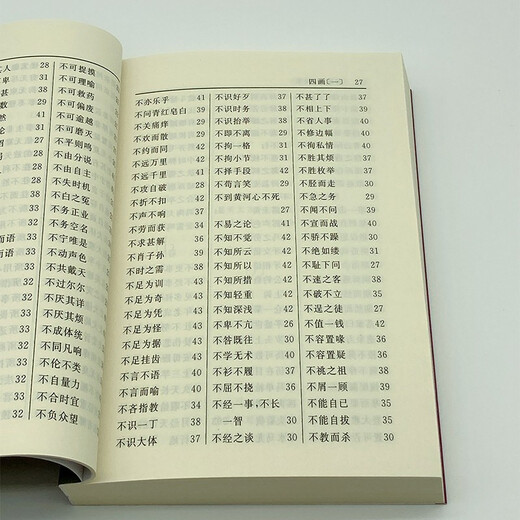 人 28
31
29
41
而语
33
而语
33
33
32
33
32
不可捉摸
不可理喻
不可救药
不可偏废
不可逾越
不可磨灭
不平则鸣
不由分说
不由自主
不失时机
不白之冤
不务正业
不务空名
不宁唯是
不动声色
不共戴天
不过尔尔
不厌其详
不厌其烦
不成体统
不同凡响
不伦不类
不自量力
不合时宜
不负众望
四画〔一〕 27
不亦乐乎 41
不问青红皂白 40
不关痛痒 29
不欢而散 29
不约而同 42
不远万里 41
不远千里 41
不攻自破 28
不折不扣 42
不声不响 37
不劳而获 34
不求甚解 36
不肖子孙 39
不时之需 38
不足为训 43
不足为奇 43
不足为凭 43
不足为怪 43
不足为据 43
不足挂齿 43
不言不语 40
不言而喻 41
不吝指教 34
不识一丁 38
不识大体 37
不识好歹 37
不识时务 38
不识抬举 38
不即不离 29
不拘一格 31
不拘小节 31
不择手段 42
不苟言笑 29
不到黄河心不死
27
不易之论 41
不知不觉 42
不知所云 42
不知所以 42
不知所措 42
不知轻重 42
不知深浅 42
不卑不亢 26
不咎既往 30
不学无术 40
不衫不履 37
不屈不挠 36
不经一事,不长
一智 30
不经之谈 30
不甚了了 37
不相上下 39
不省人事 40
不修边幅 40
不徇私情 40
不胜其烦 37
不胜枚举 37
不胫而走 31
不急之务 29
不闻不问 39
不宣而战 40
不骄不躁 30
不绝如缕 31
不耻下问 27
不速之客 38
不破不立 35
不逞之徒 27
不值一钱 42
不容置喙 36
不容置疑 36
不祧之祖 38
不屑一顾 39
不能自已 35
不能自拔 35
不教而杀 30